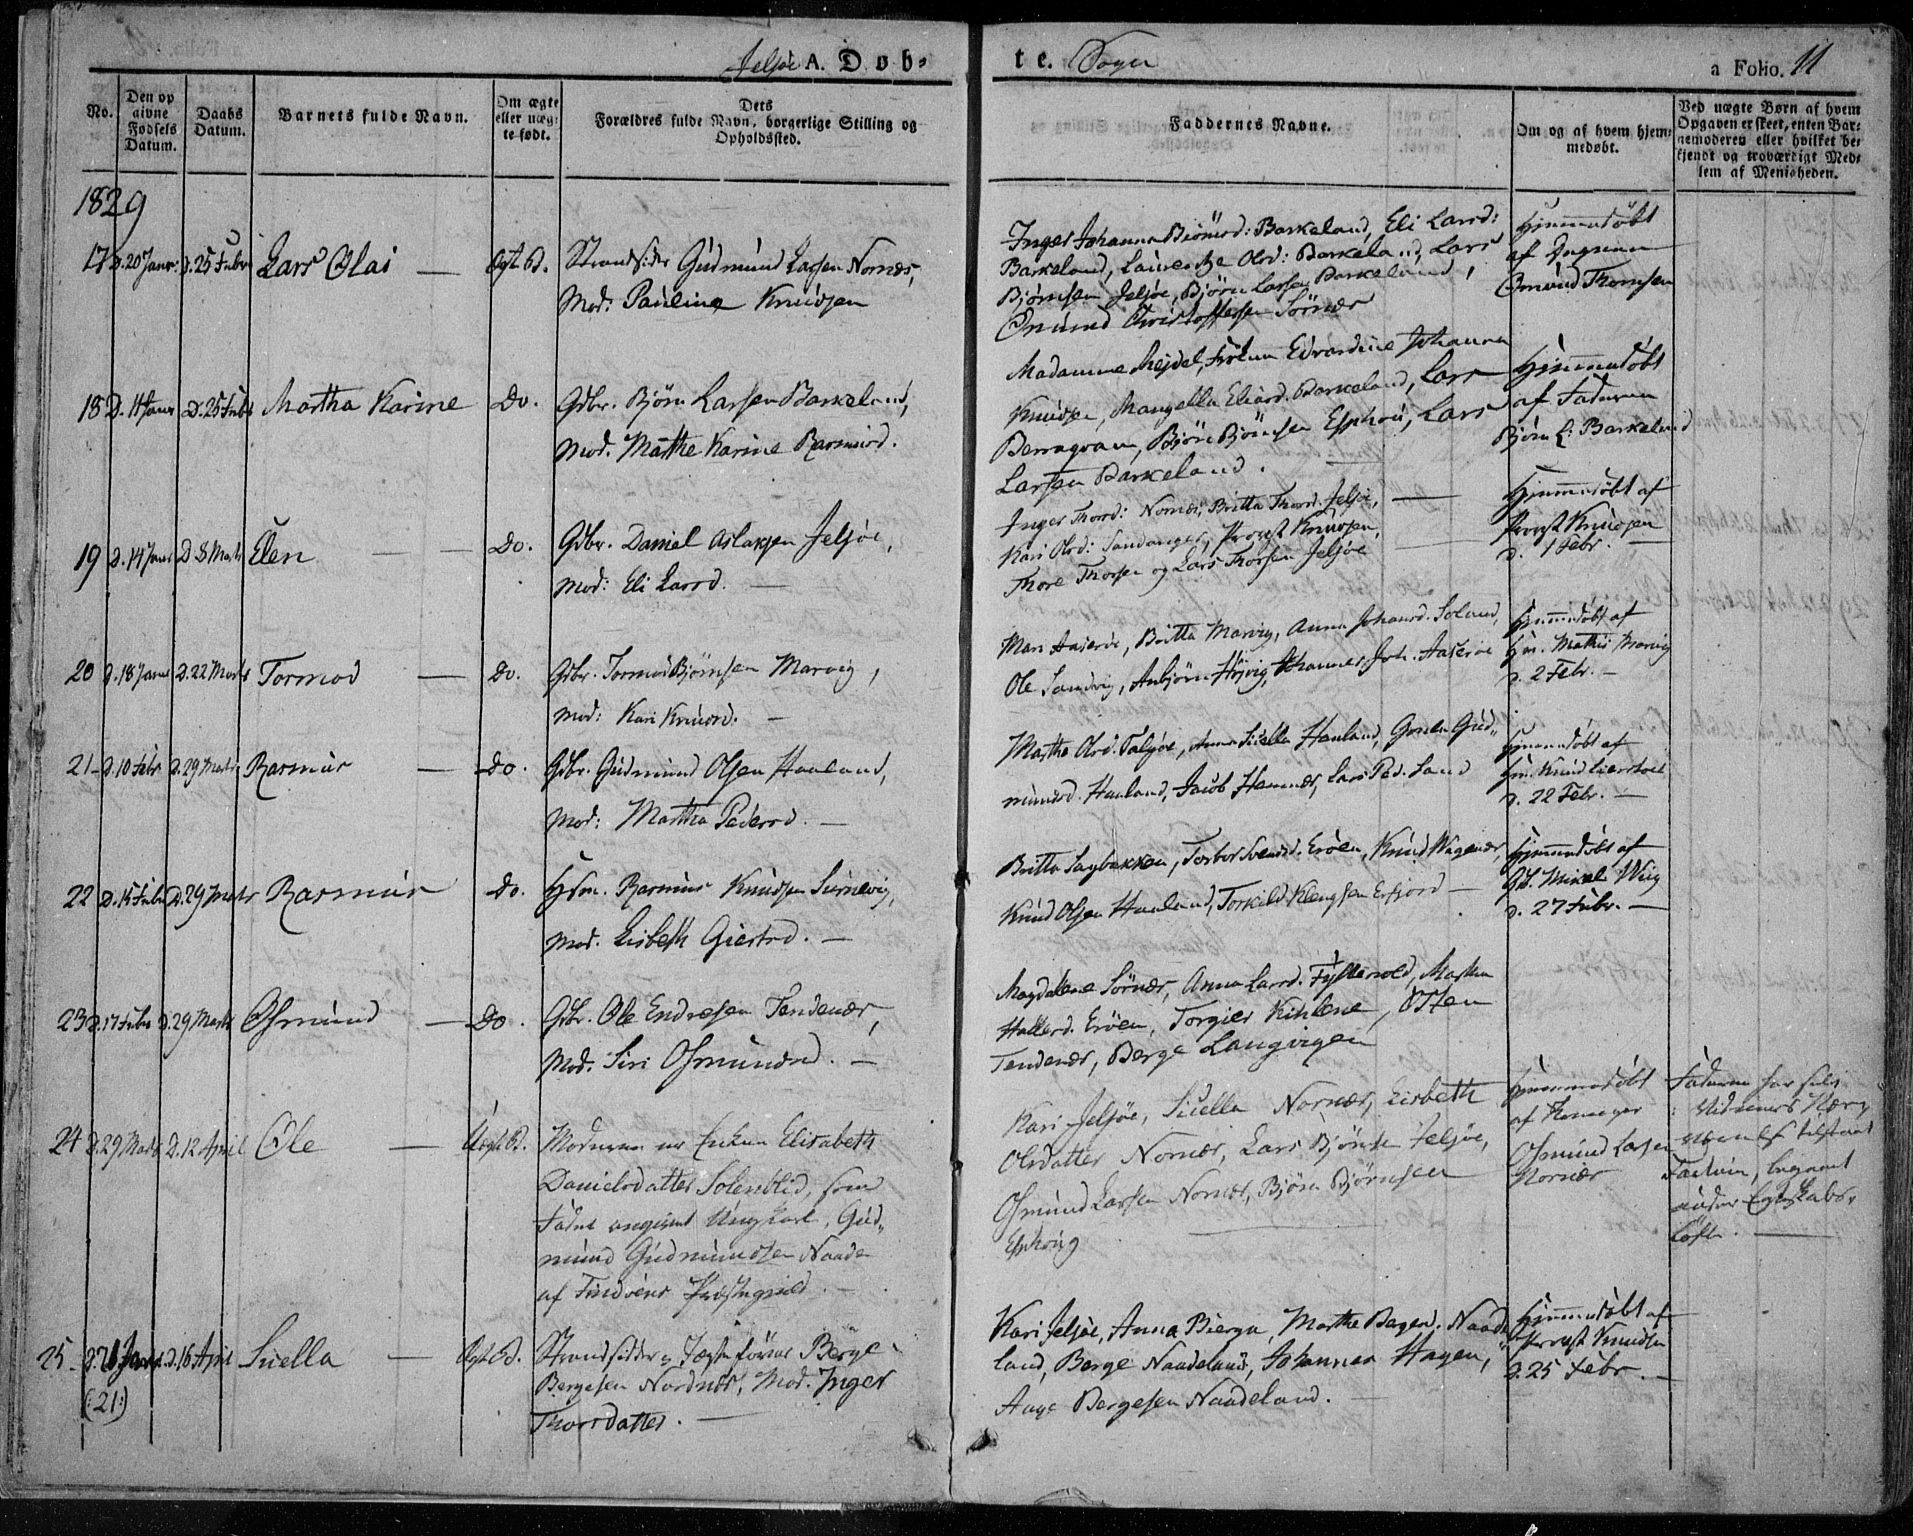 Jelsøe A. Døb-
te. Sogn
a Folio. 11
No.
Den op
givne
Fødsels
Datum.
Daabs
Datum.
Barnets fulde Navn.
Om ægte
eller uæg-
te født.
Dets
Forældres fulde Navn, borgerlige Stilling og
Opholdssted.
Faddernes Navne.
Om og af hvem hjem-
medøbt.
Ved uægte Børn af hvem
Opgaven er skeet, enten Bar-
nemoderen eller hvilket be-
kjendt og troværdigt Med-
lem af Menigheden.
1829
17 D. 20 Janr. D. 25 Febr Lars Olai — Ægt B. Strandsidder Gudmund Larsen Nornæs,
Mod. Pauline Knudsen
Inger Johanna Biörnsd: Barkeland, Eli Larsd:
Barkeland, Laurentze Olsd: Barkeland, Lars
Bjørnsen Jelsøe, Bjørn Larsen Barkeland,
Osmund Christoffersen Sörnæs
Hjemmedøbt
af
Osmund Thomsen
18 D. 11 Janr D. 25 Febr Martha Karine Do. Gdbr. Bjørn Larsen Barkeland,
Mod. Mathe Karine Rasmusd.
Madamme Mejdel, Frøken Edvardine Johanna
Knudsen, Mangella Eliasd. Barkeland, Lars
Berragvam, Bjørn Bjørnsen Esphou, Lars
Larsen Barkeland.
Hjemmedøbt
af Faderen
Bjørn L: Barkeland
19 D. 14 Janr D. 8 Marts Elen — — Do. Gdbr. Daniel Aslaksen Jelsøe,
Mod: Eli Larsd. —
Inger Thorsd: Nornæs, Britta Thorsd. Jelsøe, —
Kari Olsd: Sandanger, Provst Knudsen,
Thore Thorsen og Lars Thorsen Jelsøe
Hjemmedøbt af
Provst Knudsen
d. 1 Febr. —
20 D. 18 Janr D. 22 Marts Tormod — Do. Gdbr. Tormod Bjørnsen Marvig,
Mod: Kari Knudsd. —
Mari Aaserøe, Britta Marvig, Anna Johansd. Soland,
Ole Sandvig, Anbjørn Høivig, Johannes Joh. Aaserøe
Hjemmedøbt af
Hm. Mathis Marvig
d. 2 Febr. —
21 D. 10 Febr D. 29 Marts Rasmus — Do. Gdbr. Gudmund Olsen Hauland,
Mod: Martha Pedersd. —
Martha Olsd. Jelsøe, Anna Siella Hauland, Gud-
mundsd. Hauland, Jacob Hamnæs, Lars Ped. Sand
Hjemmedøbt af
Hm. Knud
d. 22 Febr. —
22 D. 15 Febr D. 29 Marts Rasmus Do. Hsm. Rasmus Knudsen
Mod. Lisbeth Giertsd. —
Britta Sagbakken, Torbor Svensd. Erøen, Knud Wagenæs,
Knud Olsen Hauland, Torkild Klengsen Erfjord —
Hjemmedøbt af
Gb. Mikel Wiig
d. 27 Febr. —
23 D. 17 Febr D. 29 Marts Osmund — Do. Gdbr. Ole Endresen Tendenæs,
Mod. Siri Osmundsd. —
Magdalene Sörnæs, Anna Larsd. Martha
Hallersd. Erøen, Torgier Kihlene, Osten
Tendenæs, Berge Langvigen
24 D. 29 Marts D. 12 April Ole — Uægt B. Moderen er Enken Elisabeth
Danielsdatter som
Fader angivet Ungkarl, Gud-
mund Gudmundsen Naade
af Findøens Præstegield. —
Kari Jelsøe, Siella Nornæs, Lisbeth
Olsdatter Nornæs, Lars Bjørnsen Jelsøe,
Osmund Larsen Nornæs, Bjørn Bjørnsen
Esphoug
Hjemmedøbt
af
Osmund Larsen
Nornæs
Faderen har selv
i Vidners Nærv
tilstaaet
begaaet
under Egteskabs-
løfte. —
25 D. 21 Janr. D. 16 April Siella — Ægt B. Strandsidder og Jægtefører Berge
Bergesen Nordnæs, Mod. Inger
Thorsdatter. —
(:21:)
Kari Jelsøe, Anna Bierga, Marthe Bagesd. Naade-
land, Berge Naadeland, Johannes Hagen,
Aage Bergesen Naadeland. —
Hjemmedøbt af
Provst Knudsen
d. 25 Febr. —